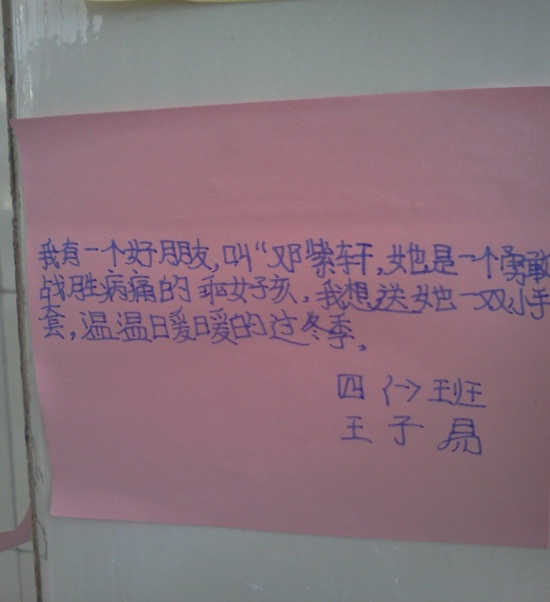 我有一个好朋友,叫“邓紫轩,她是一个勇敢
战胜病痛的乖女孩,我想送她一双小手
套,温温暖暖的过冬季。
四(一)班
王子易